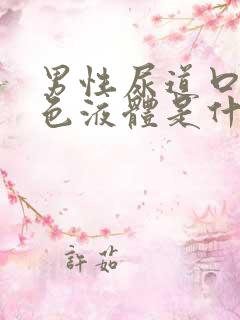 男性尿道口
色液體是什
許茹